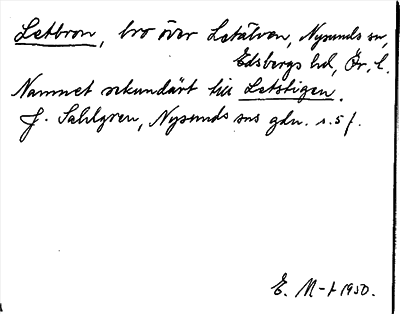 Letbron, bro över Letälven, Nysunds sn,
Edsbergs hd, Ör. l.
Namnet sekundärt till Letstigen.
J. Sahlgren, Nysunds sns gdn. s. 5 f.
E. M-t 1950.